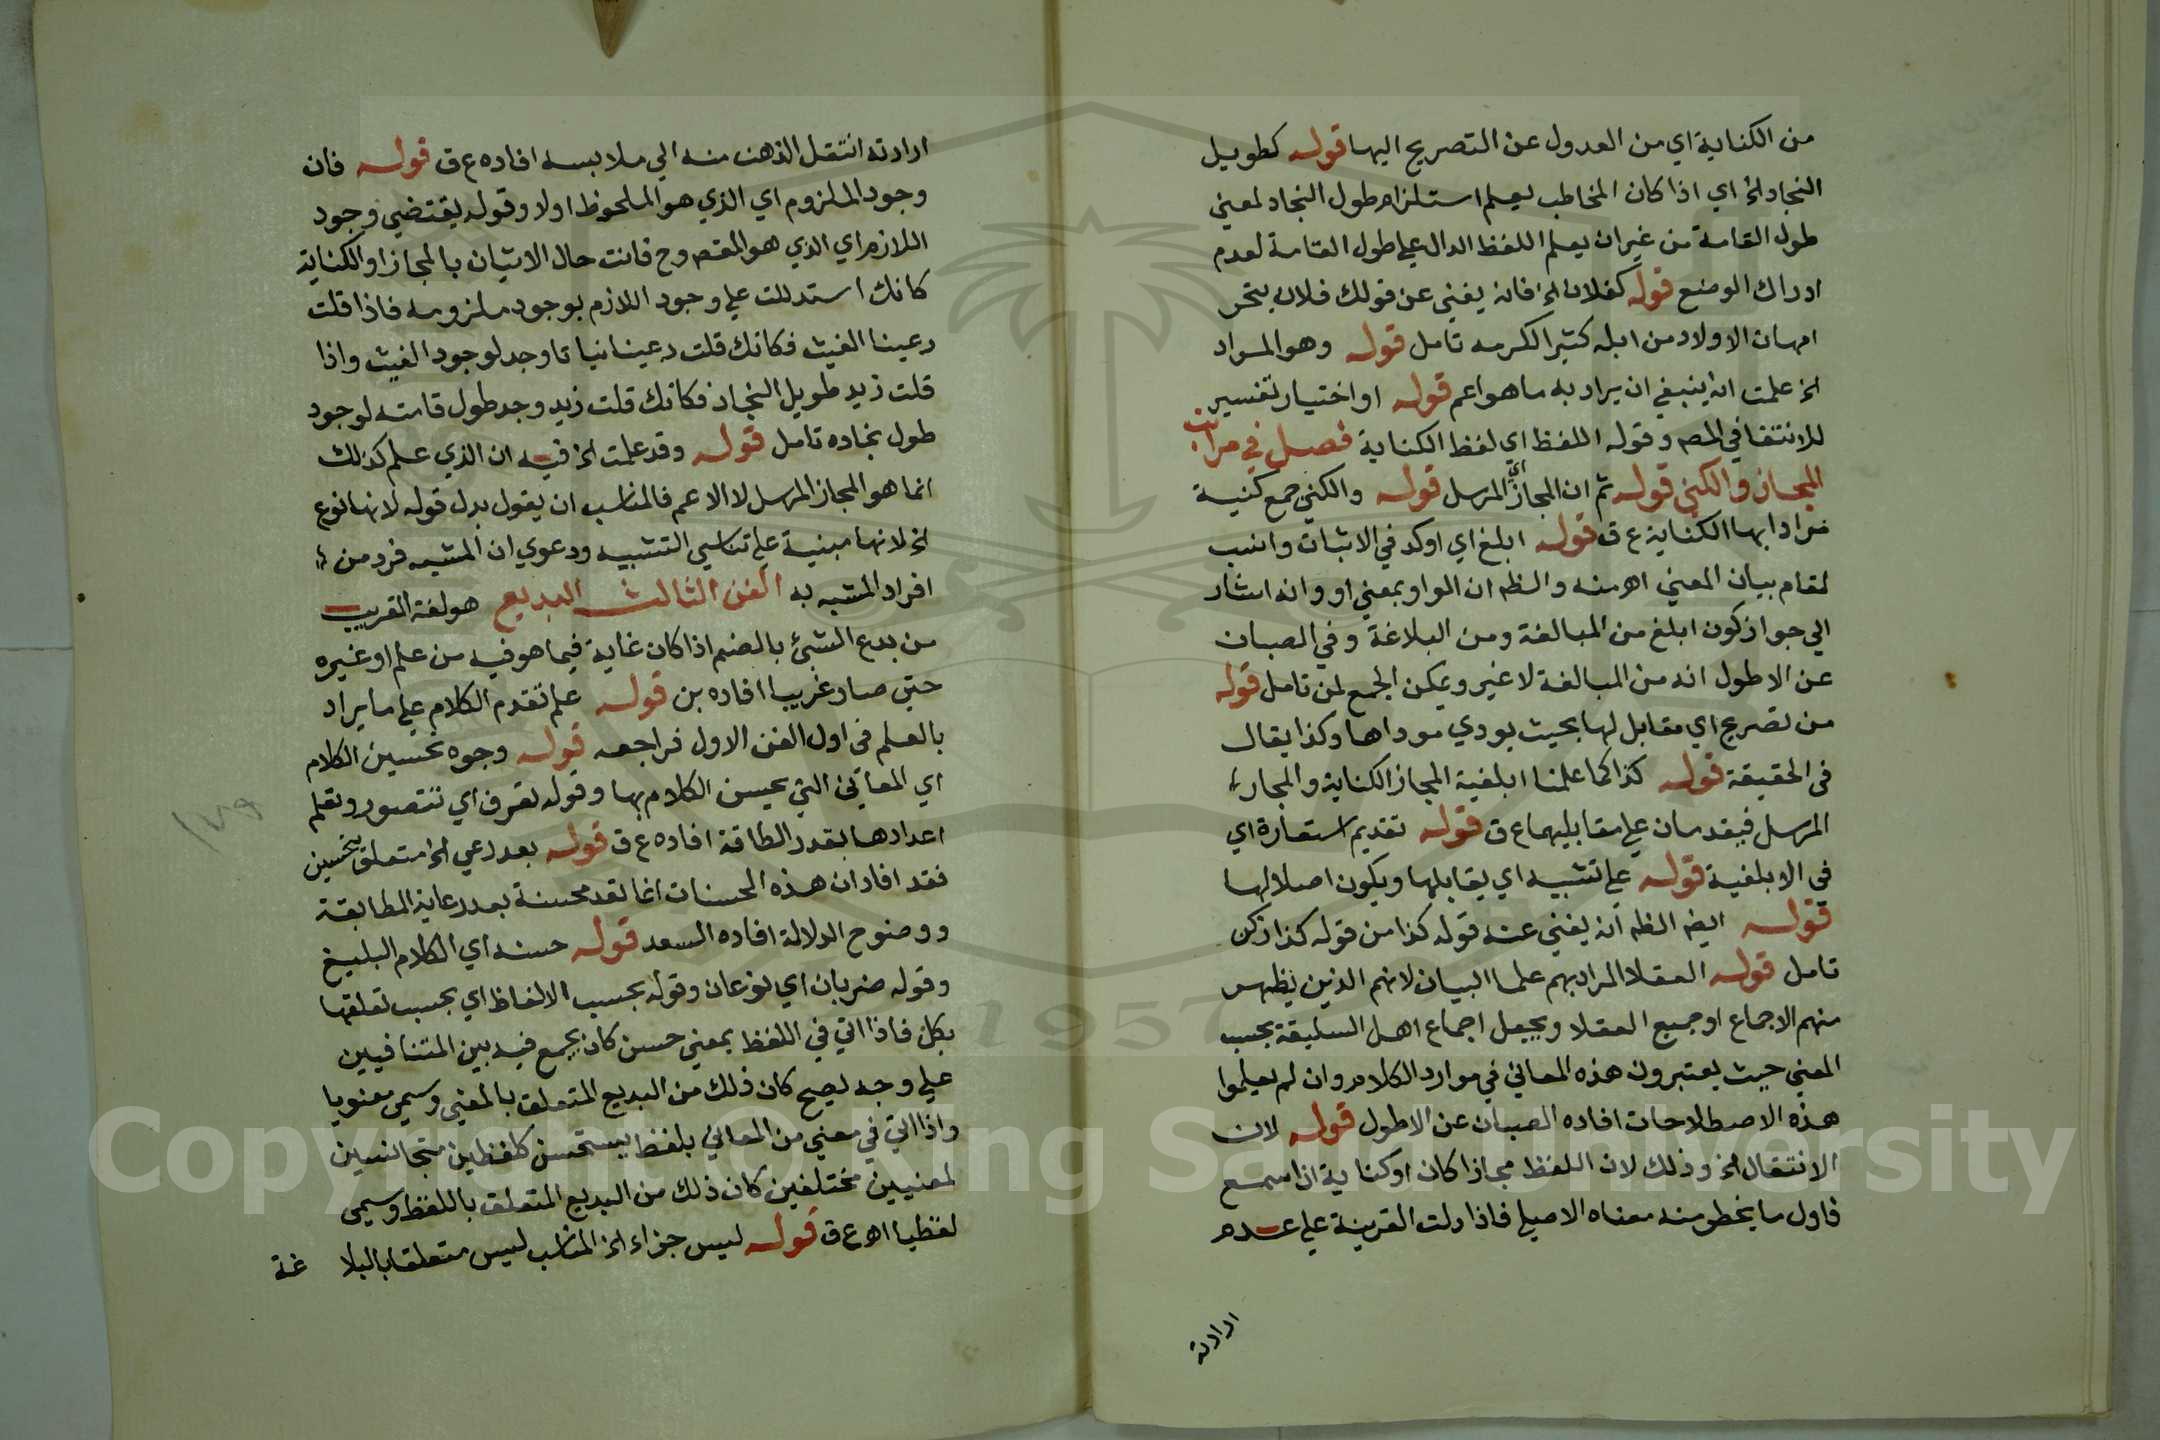 من الكناية اي من العدول عن التصريح اليها قوله كطويل
النجاد الخ اي اذا كان المخاطب يعلم استلزام طول النجاد لمعني
طول القامة من غير ان يعلم اللفظ الدال علي طول القامة لعدم
ادراك الوضع قوله كفلان الخ فانه يغني عن قولك فلان ينحر
امهات الاولاد من ابله كثير الكرمه تامل قوله وهو المراد
الخ علمت انه ينبغي ان يراد به ما هو اعم قوله او اختيار تفسير
للانتقا في المص وقوله اللفظ اي لفظ الكناية فصل في مراتب
المجاز والكني قوله ثم ان المجاز اي المرسل قوله والكني جمع كنية
مرادا بها الكناية ع ق قوله ابلغ اي اوكد في الاثبات وانسب
لمقام بيان المعني اهـ منه والظ ان الواو بمعني او وانه اشار
الي جواز كون ابلغ من المبالغة ومن البلاغة وفي الصبان
عن الاطول انه من المبالغة لا غير ويمكن الجمع لمن تامل قوله
من تصريح اي مقابل لها بحيث يودي موداها وكذا يقال
في الحقيقة قوله كذا كما علمنا ابلغية المجاز الكناية والمجاز
المرسل فيقدمان علي مقابليهما ع ق قوله تقديم استعارة اي
في الابلغية قوله علي تشبيه اي يقابلها ويكون اصلا لها
قوله ايض الظ انه يغني عنه قوله كذا من قوله كذا زكن
تامل قوله العقلا المراد بهم علما البيان لانهم الذين يظهر
منهم الاجماع او جميع العقلا ويجعل اجماع اهل السليقة بحسب
المعني حيث يعتبرون هذه المعاني في موارد الكلام وان لم يعلموا
هذه الاصطلاحات افاده الصبان عن الاطول قوله لان
الانتقال الخ وذلك لان اللفظ مجازا كان او كناية اذا سمع
فاول ما يخطر منه معناه الاصلي فاذا دلت القرينة علي عدم
ارادته
ارادته انتقل الذهن منه الي ملابسه افاده ع ق قوله فان
وجود الملزوم اي الذي هو الملحوظ اولا وقوله يقتضي وجود
اللازم اي الذي هو المقص وح فانت حال الاتيان بالمجاز او الكناية
كانك استدللت علي وجود اللازم بوجود ملزومه فاذا قلت
رعينا الغيث فكانك قلت رعينا نباتا وجد لوجود الغيث واذا
قلت زيد طويل النجاد فكانك قلت زيد وجد طول قامته لوجود
طول نجاده تامل قوله وقد علمت الخ فيه ان الذي علم كذلك
انما هو المجاز المرسل لا الاعم فالمناسب ان يقول بدل قوله لانها نوع
الخ لانها مبنية علي تناسي التشبيه ودعوي ان المشبه فرد من
افراد المشبه به الفن الثالث البديع هو لغة الغريب
من بدع الشيئ بالضم اذا كان غاية فيما هو فيه من علم او غيره
حتي صار غريبا افاده بن قوله علم تقدم الكلام علي ما يراد
بالعلم في اول الفن الاول فراجعه قوله وجوه تحسين الكلام
اي المعاني التي يحسن الكلام بها وقوله تعرف اي تتصور وتعلم
اعدادها بقدر الطاقة افاده ع ق قوله بعد رعي الخ متعلق بتحسين
فقد افاد ان هذه المحسنات انما تعد محسنة بعد رعاية المطابقة
ووضوح الدلالة افاده السعد قوله حسنه اي الكلام البليغ
وقوله ضربان اي نوعان وقوله بحسب الالفاظ اي بحسب تعلقها
بكل فاذا اتي في اللفظ بمعني حسن كان يجمع فيه بين المتنافيين
علي وجه يصح كان ذلك من البديع المتعلق بالمعني وسمي معنويا
واذا اتي في معني من المعاني بلفظ يستحسن كلفظين متجانسين
لمعنيين مختلفين كان ذلك من البديع المتعلق باللفظ وسمي
لفظيا اهـ ع ق قوله ليس جزاء الخ المناسب ليس متعلقا بالبلا غة
١٧٩
1957
Copyright © King Saud University